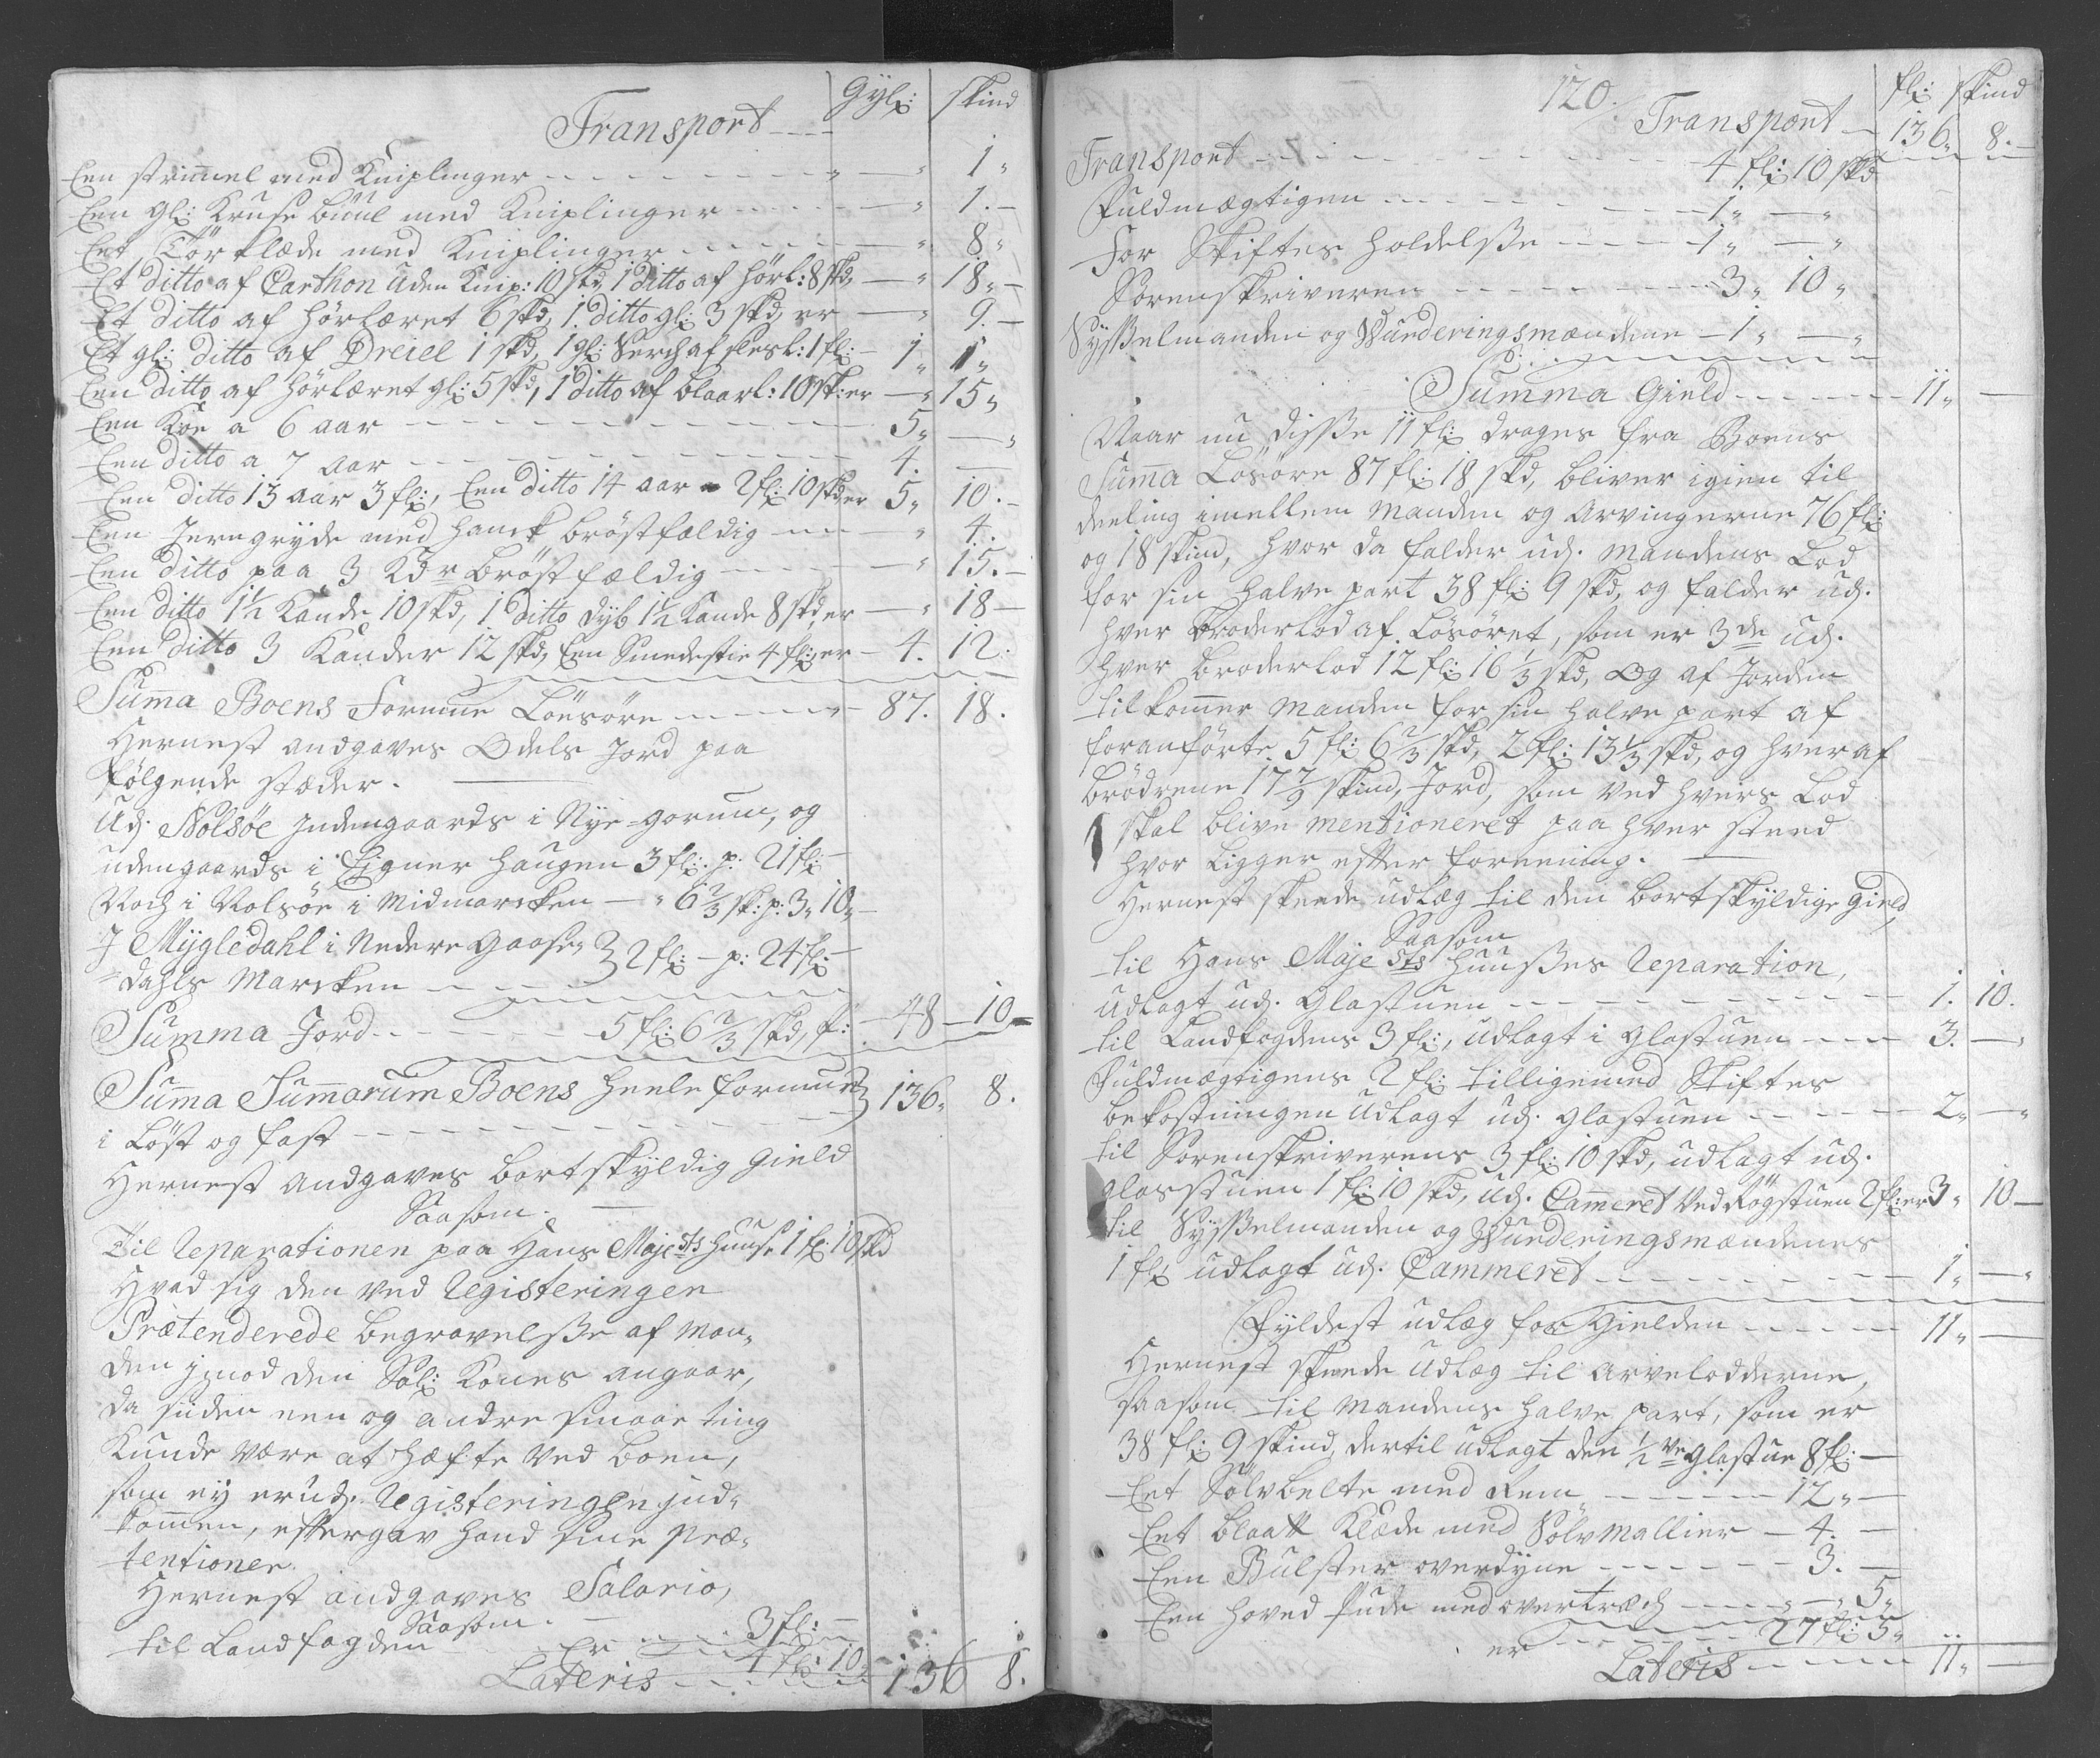 Gyl: Skind
Transport
Een strimmel med Kniplinger - - - " 1 "
Een gl: Kruse büül med Kniplinger - - - " 1. -
Eet Törklæde med Kniplinger - - - " 8 "
Et ditto af Carthon uden Knip: 10 skd, 1 ditto af hörl: 8 skd, - " 18 " -
Et ditto af hörlæret 6 skd, 1 ditto gl: 3 skd, er - " 9. -
Et gl: ditto af Dreiel 1 skd, 1 gl: Serch af flesk: 1 fl: - 1 " 1 "
Een ditto af hörlæret gl: 5 skd, 1 ditto af blaarl: 10 sk: er - " 15 "
Een Koe a 6 aar - - - 5 " - "
Een ditto a 7 aar - - - 4. -
Een ditto 13 aar 3 fl:, Een ditto 14 aar - 2 fl: 10 skd er 5 " 10. -
Een Jerngryde med hanck bröstfældig - - - " 4.
Een ditto paa 3 Kdr bröstfældig - - - " 15. -
Een ditto 1½ Kande 10 skd, 1 ditto dyb 1½ Kande 8 skd, er - " 18 -
Een ditto 3 Kander 12 skd, Een Smedestie 4 fl: er - 4. 12.
Summa Boens Formue Löesöre - - - 87. 18.
Hernest andgaves Odels Jord paa
følgende stæder.
Udj Nolsöe Indengaards i Nye-gorum, og
udengaards i Eigner haugen 3 fl: p: 21 fl: -
Noch i Nolsöe i Midmarcken - " 6 2/3 sk: p: 3 " 10 " -
J Mygledahl i Nedere Gaase-
dahls Marcken - - - 2 fl: - p: 24 fl: -
Summa Jord - - - 5 fl: 6 2/3 skd, f: - 48 - 10 -
Suma Sumarum Boens heele formue 136 " 8.
i Löst og fast - - -
Hernest andgaves bortskyldig Gield
Saasom.
Til Reparationen paa Hans Majests huuse 1 fl: 10 skd
Hvad sig den ved Registeringen
Prætenderede begravelsße af Man-
den imod den Sal: Kones angaar,
da siiden een og andre smaae ting
Kunde være at hæfte ved boen,
som ey er udj. Registeringen ind-
kommen, eftergav hand sine Præ-
tentioner.
Hernest andgaves Salario,
Saasom.
til Landfogden - - - 3 fl: -
Er - - - 4 fl: 10
Lateris - - - 136 8.
120.
fl: Skind
Transport - 136 " 8. -
Transport - - - 4 fl: 10 skd
Fuldmægtigen - - - 1 " - "
For Skiftes holdelsße - - - 1 " - "
Sorenskriveren - - - 3 " 10 "
Sysßelmanden og Wurderingsmændene - 1 " - "
Summa Gield - - - 11 " -
Naar nu disße 11 fl: drages fra Boens
Suma Lösöre 87 fl: 18 skd, bliver igien til
deeling imellem Manden og Arvingerne 76 fl:
og 18 skind, hvor da falder udj. Mandens Lod
for sin halve part 38 fl: 9 skd, og falder udj.
hver Broderlod af Lösöret, som er 3de udj.
hver broderlod 12 fl: 16 1/3 skd, Og af Jorden
tilkommer Manden for sin halve part af
foranförte 5 fl: 6 2/3 skd, 2 fl: 13 1/3 skd, og hver af
Brödrene 17 7/9 skind, Jord, som ved hvers Lod
skal blive mentioneret paa hver steed
hvor Ligger efter foreening.
Hernest skeede udlæg til den bortskyldige Gield,
Saasom
til Hans Majests huusßes Reparation,
udlagt udj. Glastuen - - - 1. 10.
til Landfogdens 3 fl:, udlagt i glastuen - - - 3. - "
Fuldmægtigens 2 fl: tilligemed Skiftes
bekostningen udlagt udj. glastuen - - - 2 " - "
til Sorenskriverens 3 fl: 10 skd, udlagt udj.
glasstuen 1 fl: 10 skd, udj. Cammeret ved Rögstuen 2 fl: er 3 " 10 -
til Sysßelmanden og Wurderingsmændenes
1 fl: udlagt udj. Cammeret - - - 1 " - "
Fyldest udlæg for Gielden - - - 11 " -
Hernest skeede udlæg til Arvelodderne,
saasom til Mandens halve part, som er
38 fl: 9 skind, dertil udlagt den ½ve glastue 8 fl: -
Eet Sölvbelte med Rem - - - 12 " -
Eet blaatt Klæde med Sölvmallier - 4. -
Een Bulster overdyne - - - 3. -
Een hoved Pude med overtræch - - - " - 5 "
er - - - 27 fl: 5 "
Lateris - - - 11 " -